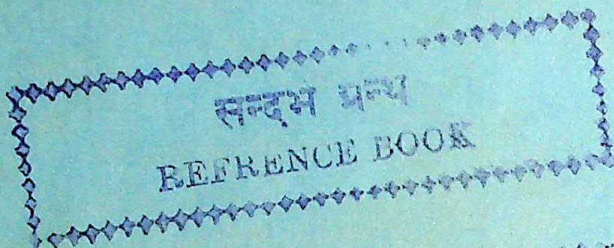 सन्दर्भ ग्रन्थ
REFRENCE BOOK